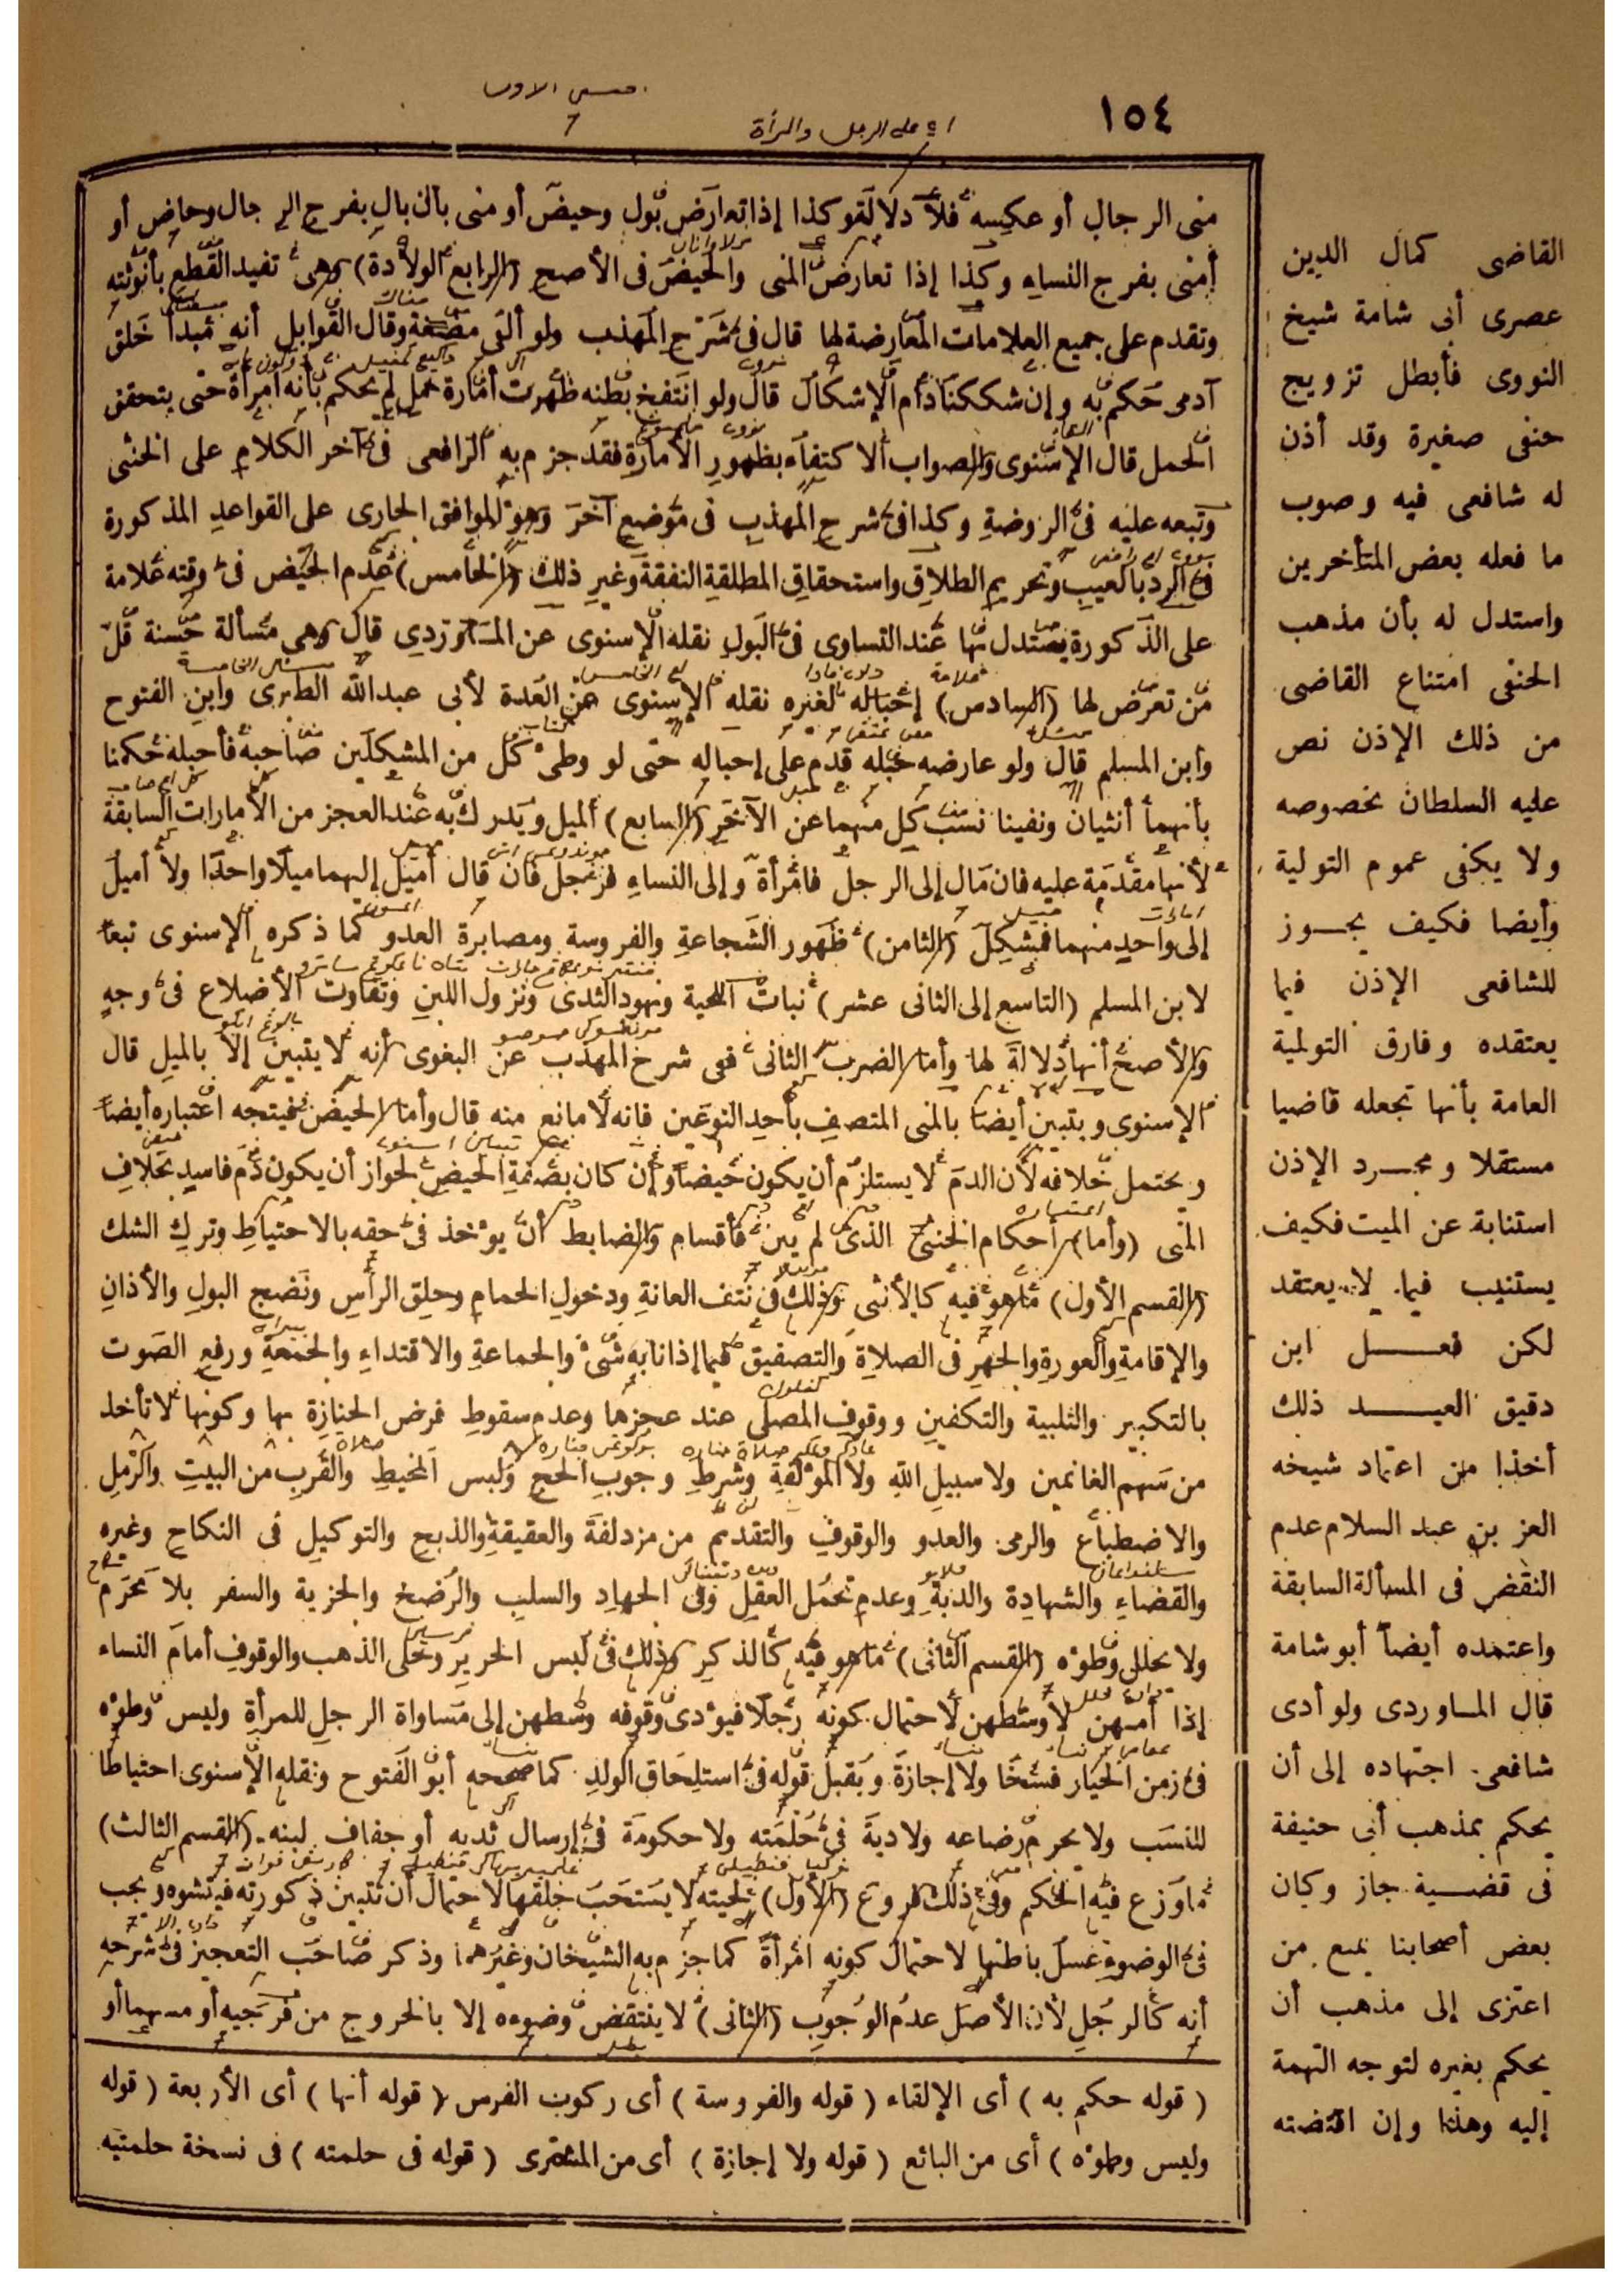 ١٥٤
منى الرجال أو عكسه فلا دلالة وكذا إذا تعارض بول وحيض أو منى بأن بال بفرج الرجال وحاض أو
أمنى بفرج النساء وكذا إذا تعارض المنى والحيض فى الأصح (الرابع الولادة) وهى تفيد القطع بأنوثته
وتقدم على جميع العلامات المعارضة لها قال فى شرح المهذب ولو ألقى مضغة وقال القوابل أنه مبدأ خلق
آدمى حكم به وإن شككنا دام الإشكال قال ولو انتفخ بطنه ظهرت أمارة حمل لم يحكم بأنه امرأة حتى يتحقق
الحمل قال الإسنوى والصواب الاكتفاء بظهور الأمارة فقد جزم به الرافعى فى آخر الكلام على الخنثى
وتبعه عليه فى الروضة وكذا فى شرح المهذب فى موضع آخر وهو الموافق الجارى على القواعد المذكورة
فى الرد بالعيب وتحريم الطلاق واستحقاق المطلقة النفقة وغير ذلك (الخامس) عدم الحيض فى وقته علامة
على الذكورة يستدل بها عند التساوى فى البول نقله الإسنوى عن الماوردي قال وهى مسألة حسنة قل
من تعرض لها (السادس) إحباله لغيره نقله الإسنوى عن العدة لأبى عبد الله الطبرى وابن الفتوح
وابن المسلم قال ولو عارضه حبله قدم على إحباله حتى لو وطئ كل من المشكلين صاحبه فأحبله حكمنا
بأنهما أنثيان ونفينا نسب كل منهما عن الآخر (السابع) الميل ويدرك به عند العجز من الأمارات السابقة
لأنها مقدمة عليه فان مال إلى الرجل فامرأة وإلى النساء فرجل فان قال أميل إليهما ميلا واحدا ولا أميل
إلى واحد منهما فمشكل (الثامن) ظهور الشجاعة والفروسة ومصابرة العدو كما ذكره الإسنوى تبعا
لابن المسلم (التاسع إلى الثانى عشر) نبات اللحية ونهود الثدى ونزول اللبن وتفاوت الأضلاع فى وجه
والأصح أنها دلالة لها وأما الضرب الثانى ففى شرح المهذب عن البغوى أنه لا يتبين إلا بالميل قال
الإسنوى ويتبين أيضا بالمنى المتصف بأحد النوعين فانه لا مانع منه قال وأما الحيض فيتجه اعتباره أيضا
ويحتمل خلافه لأن الدم لا يستلزم أن يكون حيضا وإن كان بصفة الحيض لجواز أن يكون دم فاسد بخلاف
المنى (وأما) أحكام الخنثى الذى لم يبن فأقسام والضابط أن يؤخذ فى حقه بالاحتياط وترك الشك
(القسم الأول) ما هو فيه كالأنثى وذلك فى نتف العانة ودخول الحمام وحلق الرأس ونضح البول والأذان
والإقامة والعورة والجهر فى الصلاة والتصفيق فيما إذا نابه شىء والجماعة والاقتداء والجمعة ورفع الصوت
بالتكبير والتلبية والتكفين ووقوف المصلى عند عجزها وعدم سقوط فرض الجنازة بها وكونها لا تأخذ
من سهم الغانمين ولا سبيل الله ولا المؤلفة وشرط وجوب الحج ولبس المخيط والقرب من البيت والرمل
والاضطباع والرمى والعدو والوقوف والتقديم من مزدلفة والعقيقة والذبح والتوكيل فى النكاح وغيره
والقضاء والشهادة والدية وعدم تحمل العقل وفى الجهاد والسلب والرضخ والجزية والسفر بلا محرم
ولا يحلل وطؤه (القسم الثانى) ما هو فيه كالذكر وذلك فى لبس الحرير وحلى الذهب والوقوف أمام النساء
إذا أمهن لا وسطهن لاحتمال كونه رجلا فيؤدى وقوفه وسطهن إلى مساواة الرجل للمرأة وليس وطؤه
فى زمن الخيار فسخا ولا إجازة ويقبل قوله فى استلحاق الولد كما صححه أبو الفتوح ونقله الإسنوى احتياطا
للنسب ولا يحرم رضاعه ولا دية فى حلمته ولا حكومة فى إرسال ثديه أو جفاف لبنه (القسم الثالث)
ما وزع فيه الحكم وفى ذلك فروع (الأول) لحيته لا يستحب حلقها لاحتمال أن تتبين ذكورته فيتشوه ويجب
فى الوضوء غسل باطنها لاحتمال كونه امرأة كما جزم به الشيخان وغيرهما وذكر صاحب التعجيز فى شرحه
أنه كالرجل لأن الأصل عدم الوجوب (الثانى) لا ينتقض وضوءه إلا بالخروج من فرجيه أو مسهما أو
(قوله حكم به) أى الإلقاء (قوله والفروسة) أى ركوب الفرس (قوله أنها) أى الأربعة (قوله
وليس وطؤه) أى من البائع (قوله ولا إجازة) أى من المشترى (قوله فى حلمته) فى نسخة حلمتيه
القاضى كمال الدين
عصرى أبى شامة شيخ
النووى فأبطل تزويج
حنفى صغيرة وقد أذن
له شافعى فيه وصوب
ما فعله بعض المتأخرين
واستدل له بأن مذهب
الحنفى امتناع القاضى
من ذلك الإذن نص
عليه السلطان بخصوصه
ولا يكفى عموم التولية
وأيضا فكيف يجوز
للشافعى الإذن فيما
يعتقده وفارق التولية
العامة بأنها تجعله قاضيا
مستقلا ومجرد الإذن
استنابة عن الميت فكيف
يستنيب فيما لا يعتقد
لكن فعل ابن
دقيق العيد ذلك
أخذا من اعتماد شيخه
العز بن عبد السلام عدم
النقض فى المسألة السابقة
واعتمده أيضاً أبو شامة
قال الماوردى ولو أدى
شافعى اجتهاده إلى أن
يحكم بمذهب أبى حنيفة
فى قضية جاز وكان
بعض أصحابنا يمنع من
اعتزى إلى مذهب أن
يحكم بغيره لتوجه التهمة
إليه وهذا وإن اقتضته